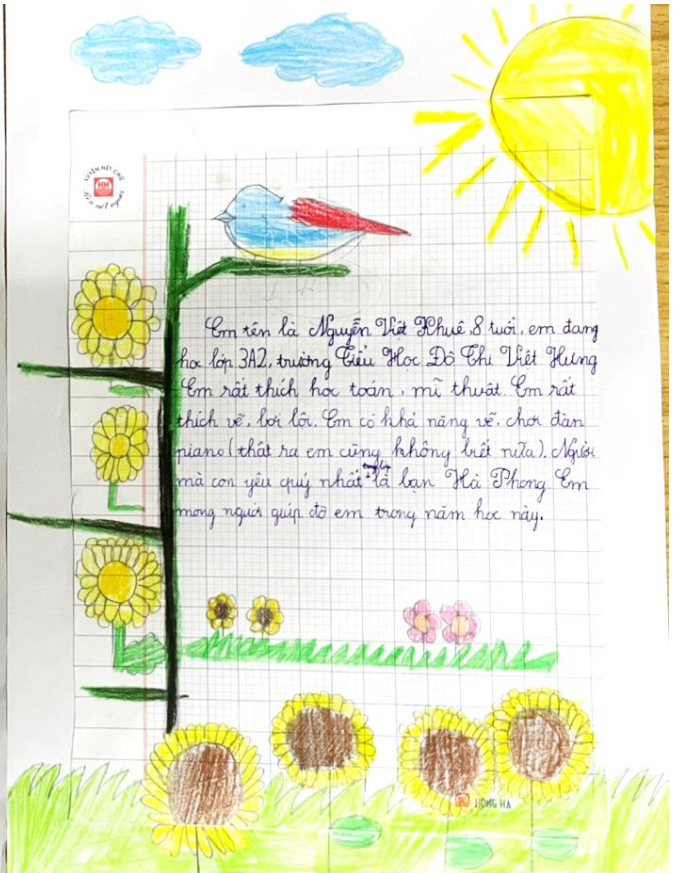 LUYỆN NÉT CHỮ
RÈN NẾT NGƯỜI
HH
Em tên là Nguyễn Viết Khuê, 8 tuổi, em đang
học lớp 3A2, trường Tiểu Học Đô Thị Việt Hưng
Em rất thích học toán, mĩ thuật. Em rất
thích vẽ, bơi lội. Em có khả năng vẽ, chơi đàn
piano (thật ra em cũng không biết nữa). Người
mà con yêu quý nhất là bạn Hà Phong. Em
mong người giúp đỡ em trong năm học này.
HONG HA